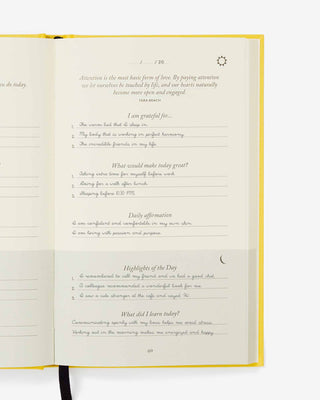 u do today.
..... / ..... / 20.....
Attention is the most basic form of love. By paying attention
we let ourselves be touched by life, and our hearts naturally
become more open and engaged.
TARA BRACH
I am grateful for...
1. The warm bed that I sleep in.
2. My body that is working in perfect harmony.
3. The incredible friends in my life.
What would make today great?
1. Taking extra time for myself before work.
2. Going for a walk after lunch.
3. Sleeping before 11:30 PM.
Daily affirmation
I am confident and comfortable in my own skin.
I am living with passion and purpose.
Highlights of the Day
1. I remembered to call my friend and we had a good chat.
2. A colleague recommended a wonderful book for me.
3. I saw a cute stranger at the cafe and said Hi.
What did I learn today?
Communicating openly with my boss helps me avoid stress.
Working out in the morning makes me energized and happy.